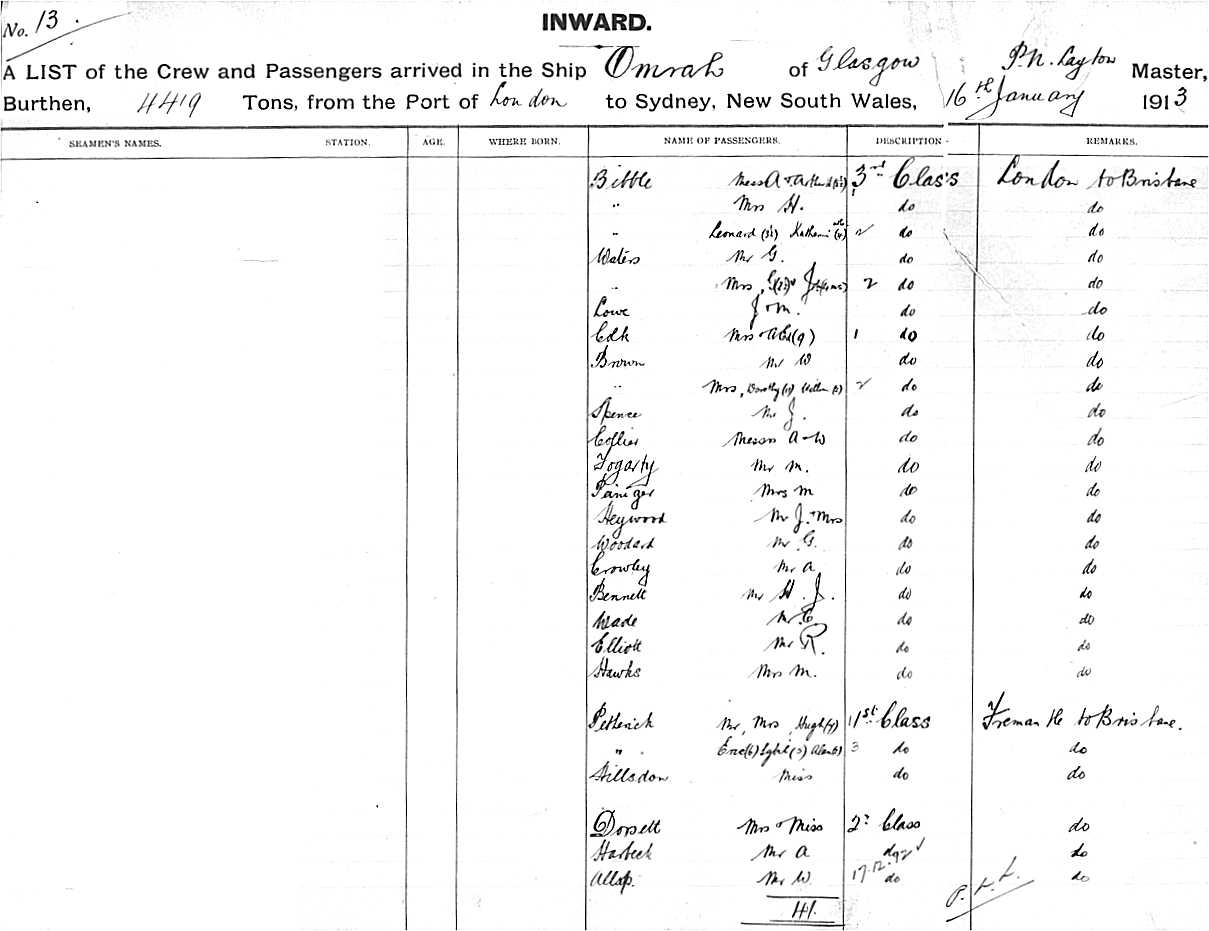 No. 13.
INWARD.
A LIST of the Crew and Passengers arrived in the Ship Omrah of Glasgow P.N. Layton Master,
Burthen, 4419 Tons, from the Port of London to Sydney, New South Wales, 16th January 1913
SEAMEN'S NAMES. STATION. AGE. WHERE BORN. NAME OF PASSENGERS. DESCRIPTION REMARKS.
Bibble Mess A 3rd Class London to Brisbane
" Mrs H. do do
" Leonard (3½) 2 do do
Waters Mr G. do do
" Mrs 2 do do
Lowe J + M. do do
Mrs + (9) 1 do do
Brown Mr W do do
" Mrs, Dorothy 2 do do
Spence Mr J. do do
Collier Messrs A + W do do
Fogarty Mr M. do do
Mrs M do do
Heywood Mr J. + Mrs do do
Woodard Mr G. do do
Crowley Mr A do do
Bennett Mr H. J. do do
Wade Mr C do do
Elliott Mr R. do do
Hawks Mrs M. do do
Petherick Mr, Mrs, Hugh 1st Class Fremantle to Brisbane.
" Eric (6) 3 do do
Hillsdon Miss do do
Dorsett Mrs + Miss 2d Class do
Harbeck Mr A do do
Allsp. Mr W. 17.12.92 do do
41.